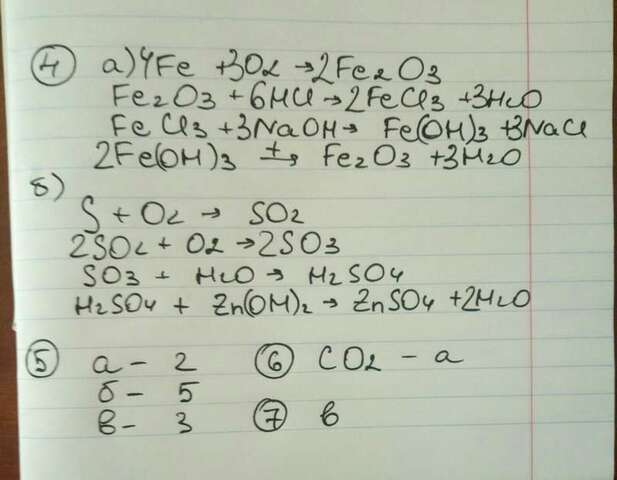 4 а) 4Fe + 3O2 → 2Fe2O3
Fe2O3 + 6HCl → 2FeCl3 + 3H2O
FeCl3 + 3NaOH → Fe(OH)3 + 3NaCl
2Fe(OH)3 t→ Fe2O3 + 3H2O
б)
S + O2 → SO2
2SO2 + O2 → 2SO3
SO3 + H2O → H2SO4
H2SO4 + Zn(OH)2 → ZnSO4 + 2H2O
5 а – 2 6 CO2 – а
б – 5
в – 3 7 в